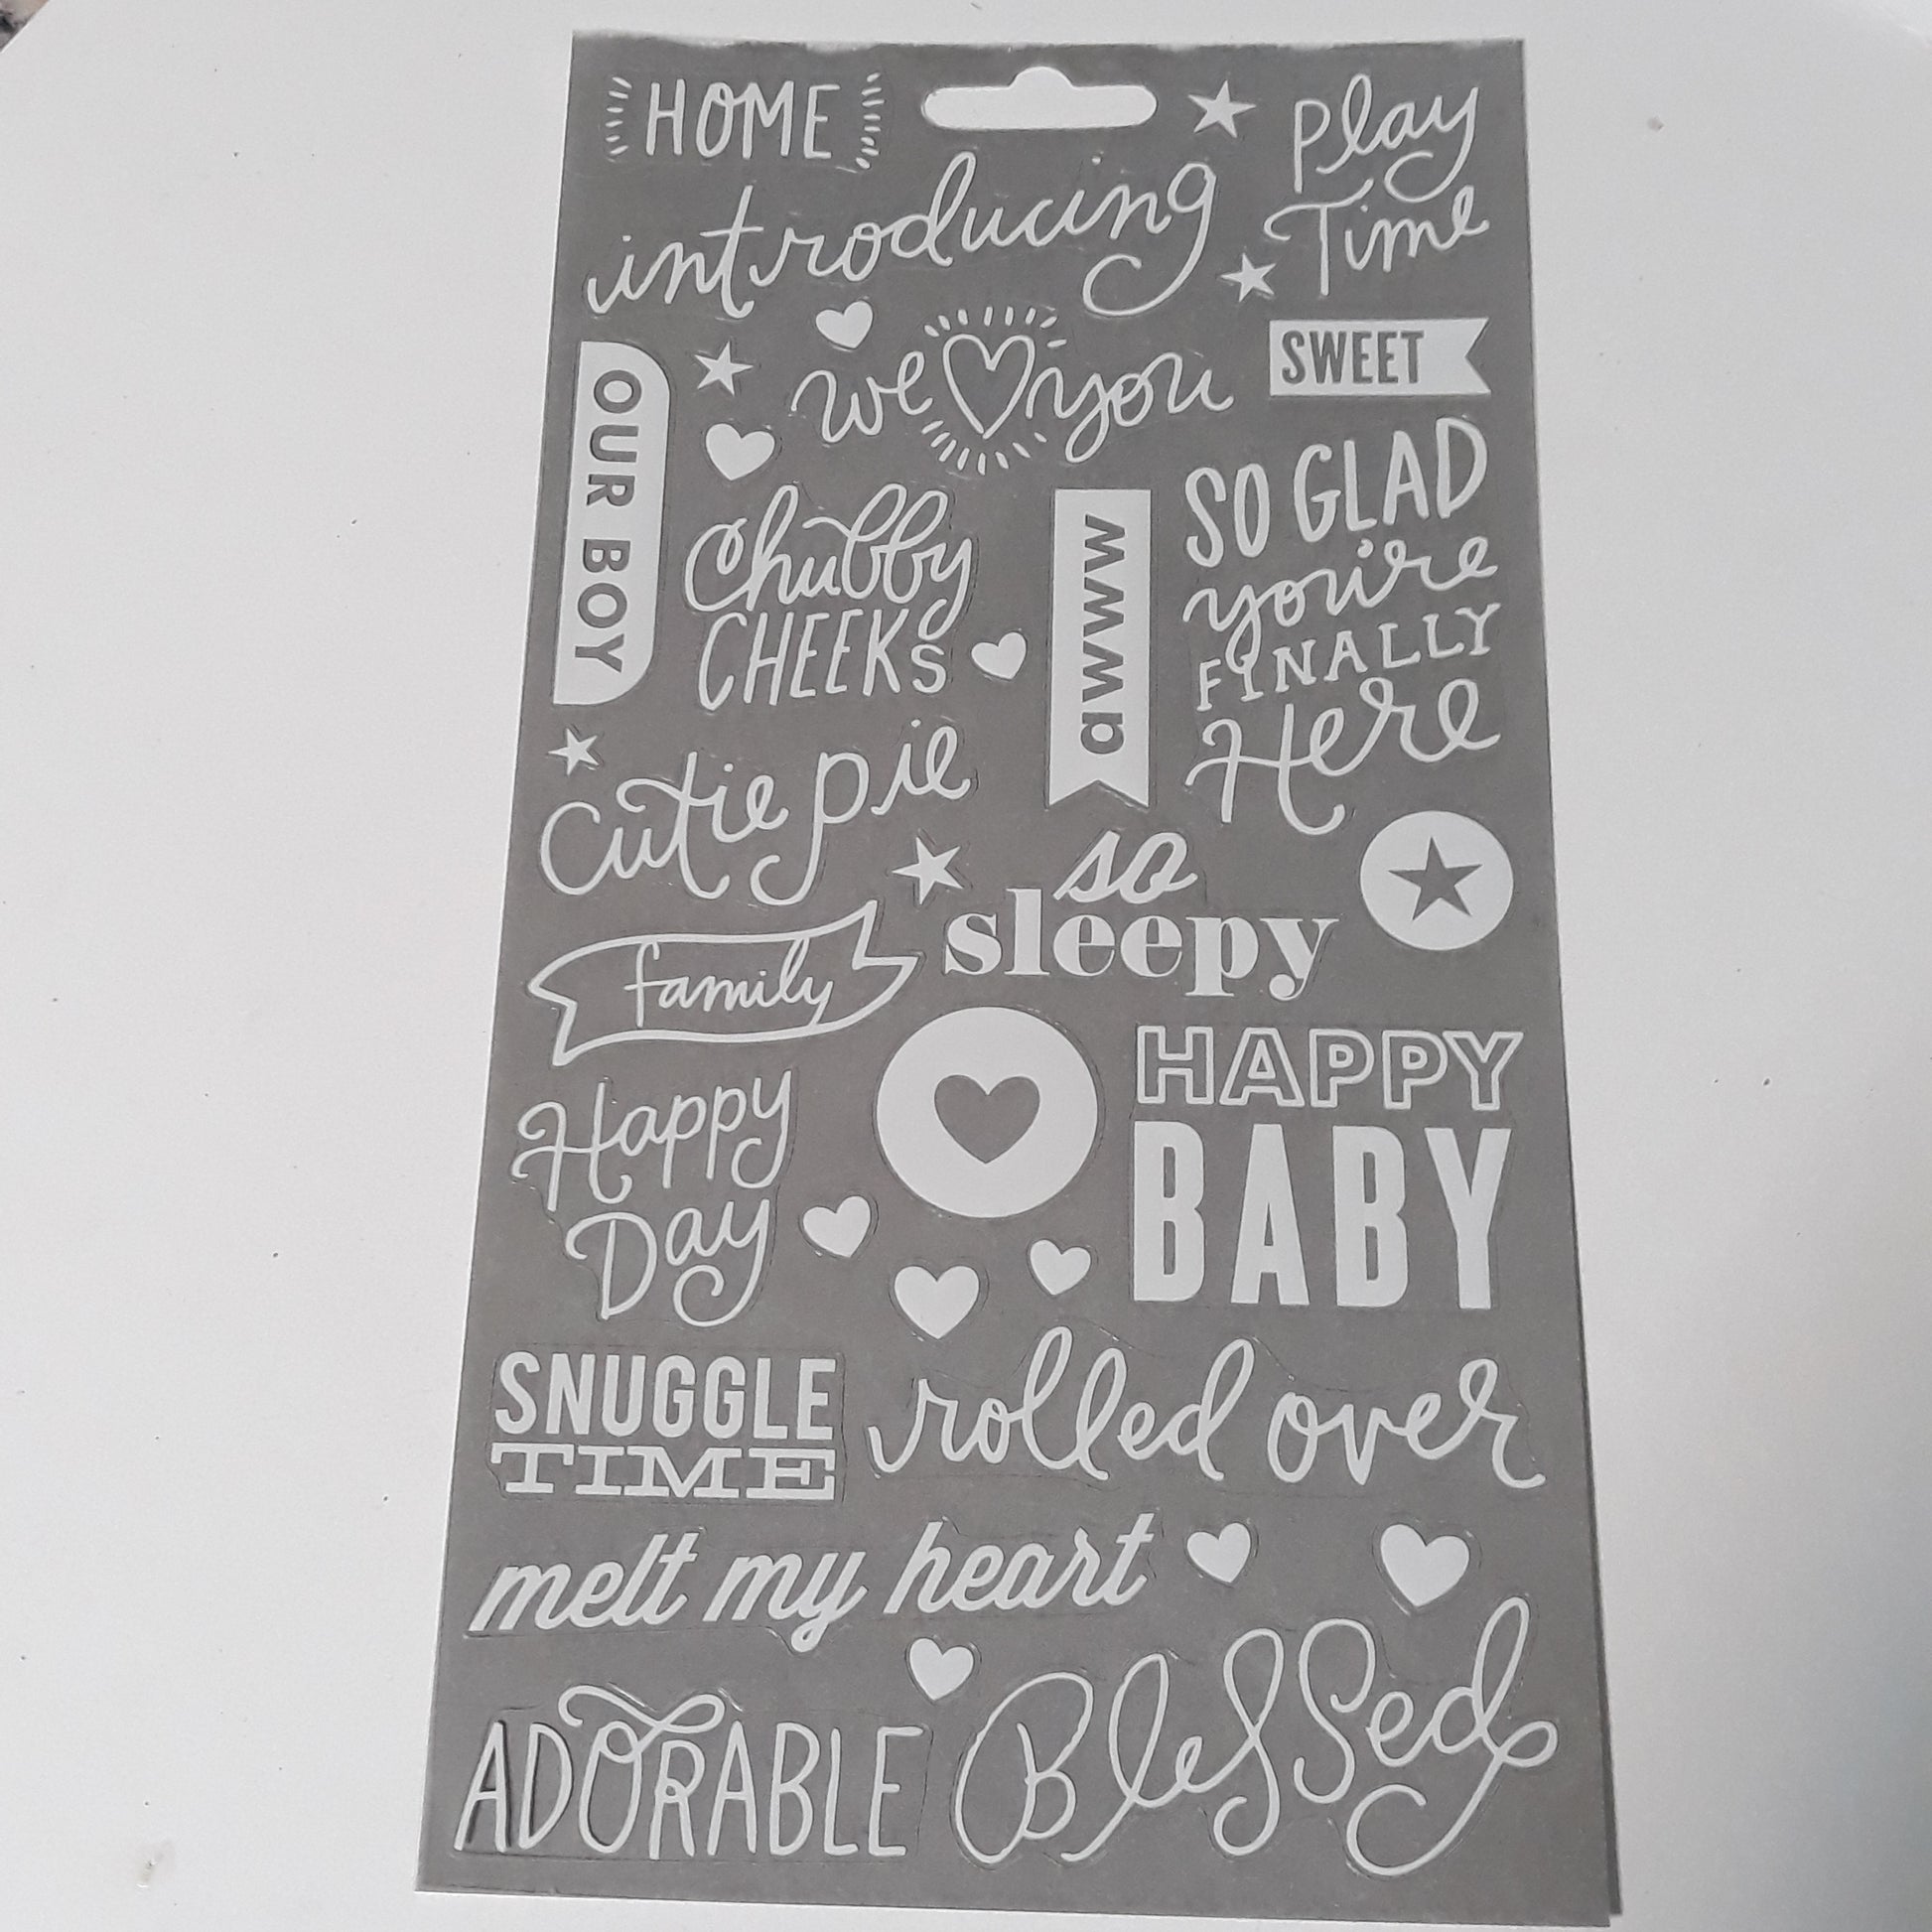 HOME
Play
Time
introducing
we you
SWEET
OUR BOY
SO GLAD
you're
FINALLY
Here
Chubby
CHEEKS
awww
Cutie pie
so
sleepy
family
HAPPY
BABY
Happy
Day
SNUGGLE
TIME
rolled over
melt my heart
ADORABLE
Blessed